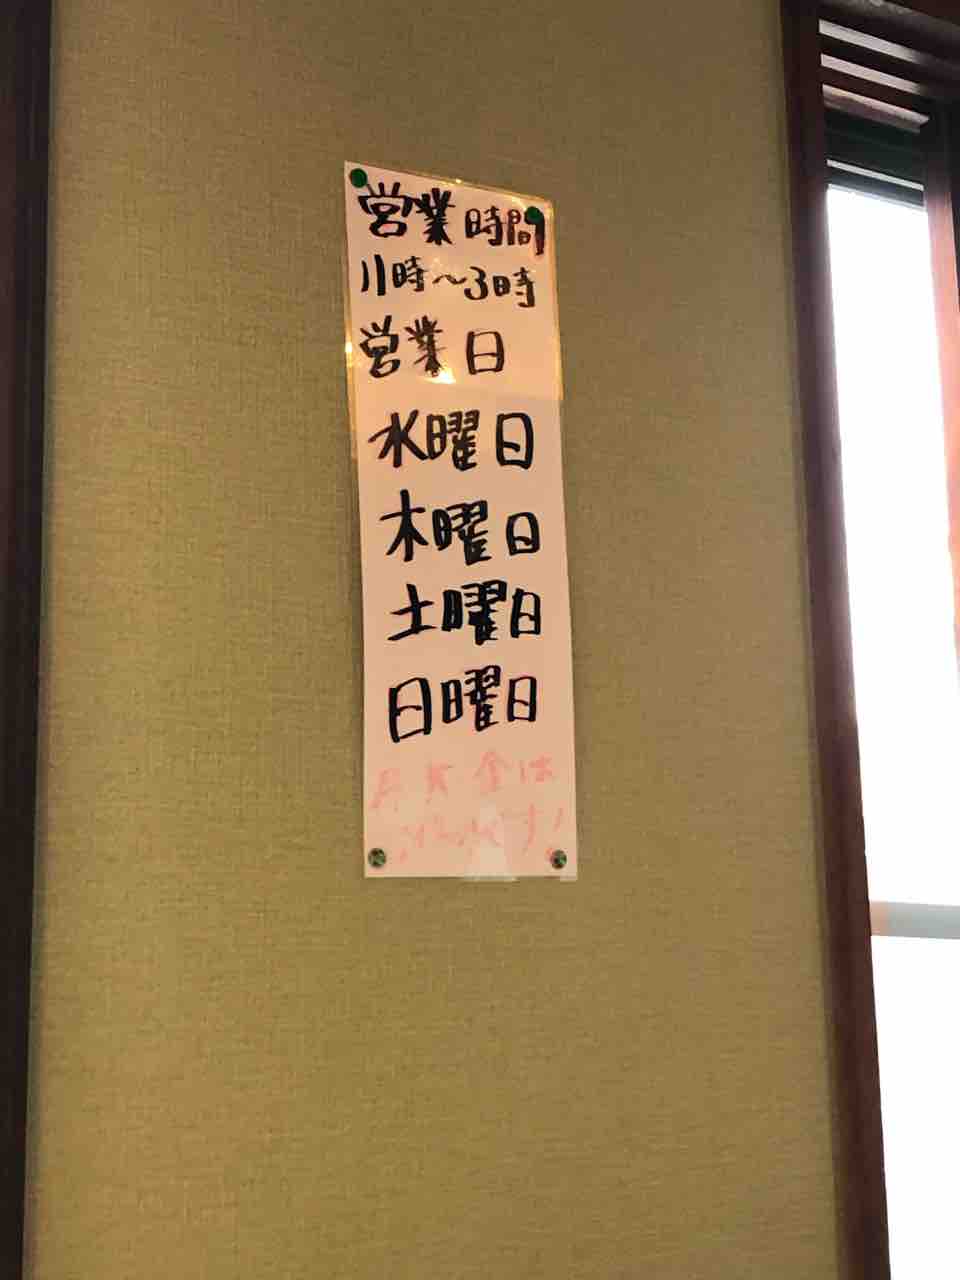 営業時間
11時～3時
営業日
水曜日
木曜日
土曜日
日曜日
月火金は
です!